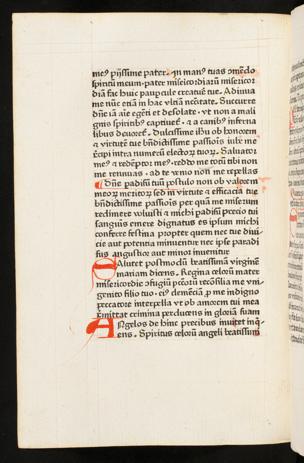 meꝰ pijssime pater. Jn manꝰ tuas ꝯmēdo
spiritū meum. pater misericordiarū misericor
diā fac huic paupcule creature tue. Adiuua
me nūc etiā in hac vltiā nc̄citate. Succurre
dn̄e iā aīe egēti et desolate. vt non a mali
gnis spiritibꝰ captiuet᷑. ⁊ a canibꝰ infernali
bus deuoret᷑. Dulcissime ihū ob honorem
⁊ virtutē tue bn̄dictissime passiois iube me
recipi intra numerū electorꝝ tuorꝝ. Saluator
meꝰ ⁊ redēptor meꝰ. reddo me totū tibi non
me rennuas. ad te venio non me repellas
Dn̄e padisū tuū postulo non ob valorem
meorꝝ meritorꝝ sed in virtute ⁊ efficacia tue
bn̄dictissime passiois per quā me miserum
redimere voluisti ⁊ michi padisū precio tui
sanguīs emere dignatus es ipsum michi
conferre festina propter quem nec tue diui
cie aut potentia minuentur nec ipse paradi
sus angustior aut minor inuenitur
Saluret postmodū beatissimā virginē
mariam dicens. Regina celorū mater
misericordie ꝯfugiū pcc̄orū recōsilia me vni
genito filio tuo. eiꝰ clemēciā ꝓ me indigno
peccatore interpella vt ob amorem tui mea
remittat crimina perducens in gloriā suam
Angelos de hinc precibus inuitet inq
ens. Spiritus celorū angeli beatissimi